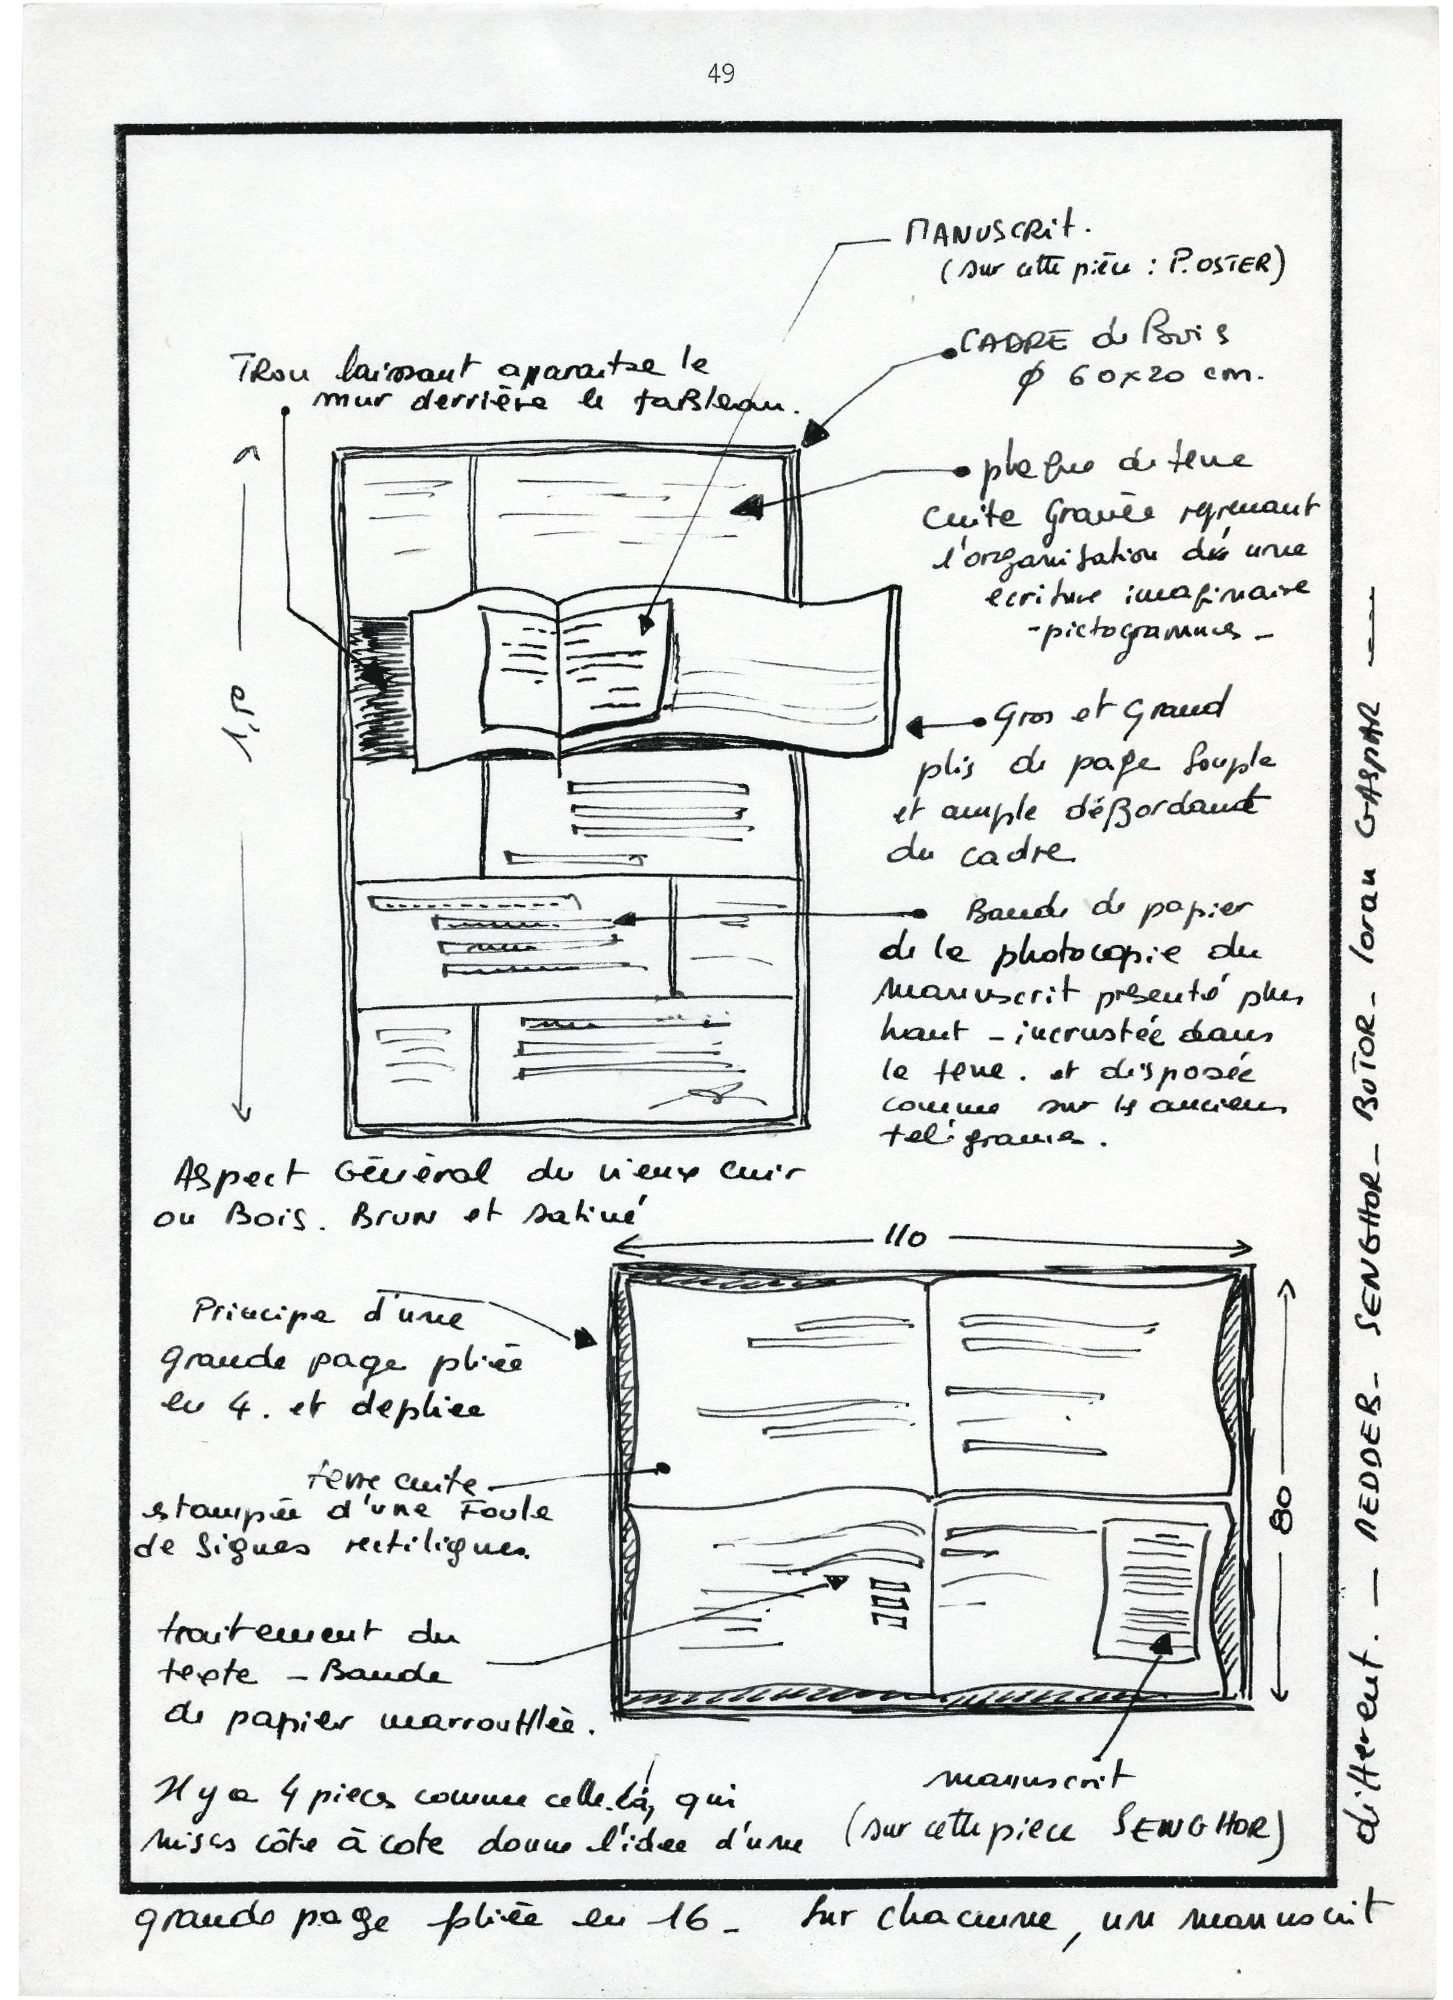 49
MANUSCRIT.
(sur cette pièce : P. OSTER)
CADRE de Bois
ϕ 60x20 cm.
TROU laissant apparaitre le
mur derrière le tableau.
plaque de terre
cuite Gravée reprenant
l'organisation d'une
écriture imaginaire
-pictogrammes-
1,50
Gros et Grand
plis de page souple
et ample déBordant
du cadre
Bande de papier
de la photocopie du
manuscrit présenté plus
haut - incrustée dans
la terre. et disposée
comme sur les anciens
télégrames.
Aspect Général du vieux cuir
ou Bois. Brun et satiné
110
80
Principe d'une
grande page pliée
en 4. et depliée
terre cuite
estampée d'une Foule
de Signes rectilignes.
traitement du
texte - Bande
de papier marrouflée.
manuscrit
(sur cette pièce SENGHOR)
Il y a 4 pieces comme celle-là, qui
mises côte à cote donne l'idée d'une
grande page pliée en 16 - Sur chacune, un manuscrit
différent. — MEDDEB - SENGHOR - BUTOR - loran GASPAR —